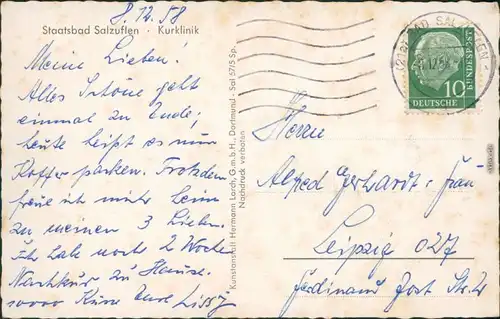 8.12.58
Staatsbad Salzuflen · Kurklinik
Meine Lieben!
Alles Schöne geht
einmal zu Ende;
heute heißt es nur
Koffer packen. Trotzdem
freue ich mich heim
zu meinen 3 Lieben.
Ich habe noch 2 Woche
Nachkur zu Hause.
10000 Küsse Eure Lissy
Kunstanstalt Hermann Lorch, G.m.b.H., Dortmund - Sal 57/5 Sp.
Nachdruck verboten
BAD SALZUFLEN
10
DEUTSCHE
BUNDESPOST
Herrn
Alfred Gerhardt u. Frau
Leipzig O27
Ferdinand Jost Str.